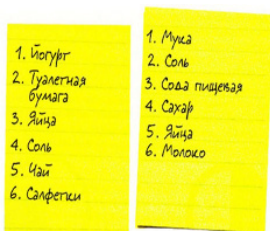 1. Йогурт
2. Туалетная
бумага
3. Яйца
4. Соль
5. Чай
6. Салфетки
1. Мука
2. Соль
3. Сода пищевая
4. Сахар
5. Яйца
6. Молоко